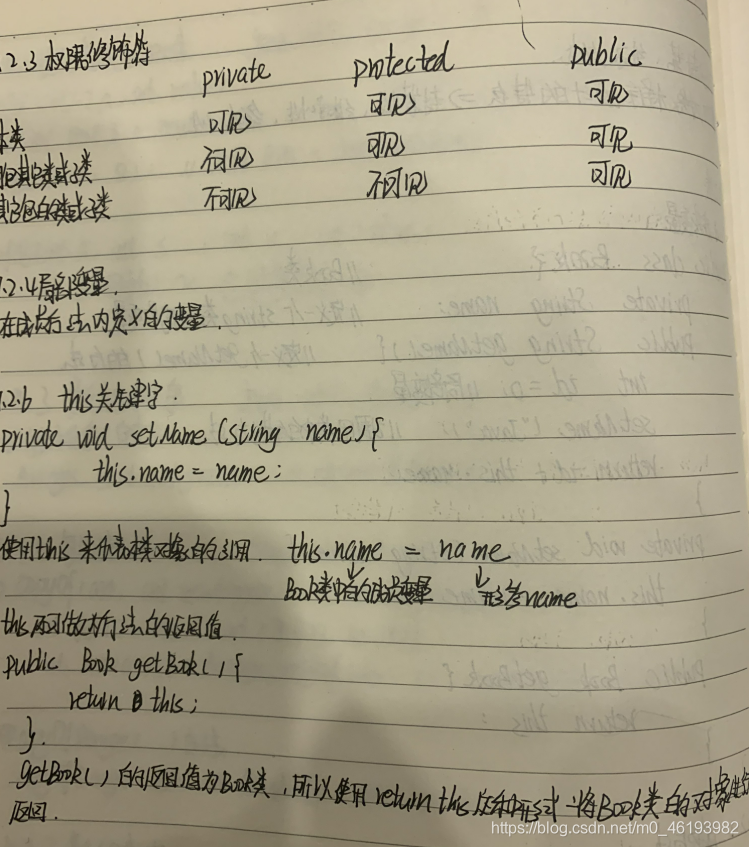 .2.3 权限修饰符
private protected public
本类 可见 可见 可见
包其它类或子类 不可见 可见 可见
其它包的类或子类 不可见 不可见 可见
.2.4 局部变量.
在成员方法内定义的变量.
.2.6 this关键字.
private void setName (String name) {
this.name = name;
}
使用this 来代表本类对象的引用. this.name = name
Book类中的成员变量 形参name
this 可以做为方法的返回值.
public Book getBook() {
return this;
}.
getBook() 的返回值为Book类,所以使用 return this 这种形式 将Book类的对象进行
返回.
https://blog.csdn.net/m0_46193982